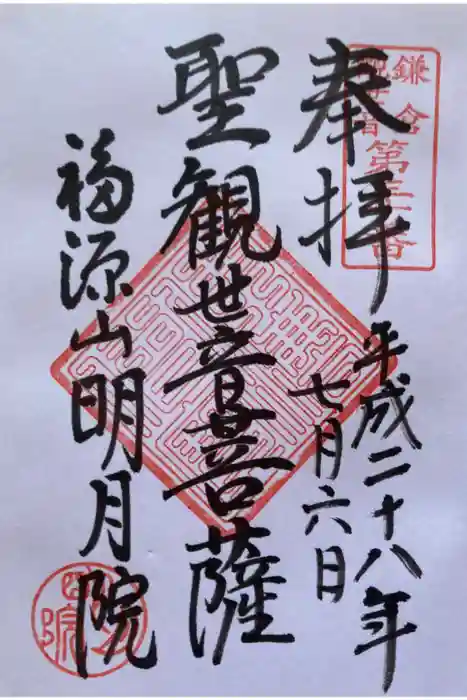 奉拝
平成二十八年
七月六日
聖観世音菩薩
福源山明月院
鎌倉
観世音
第三十番